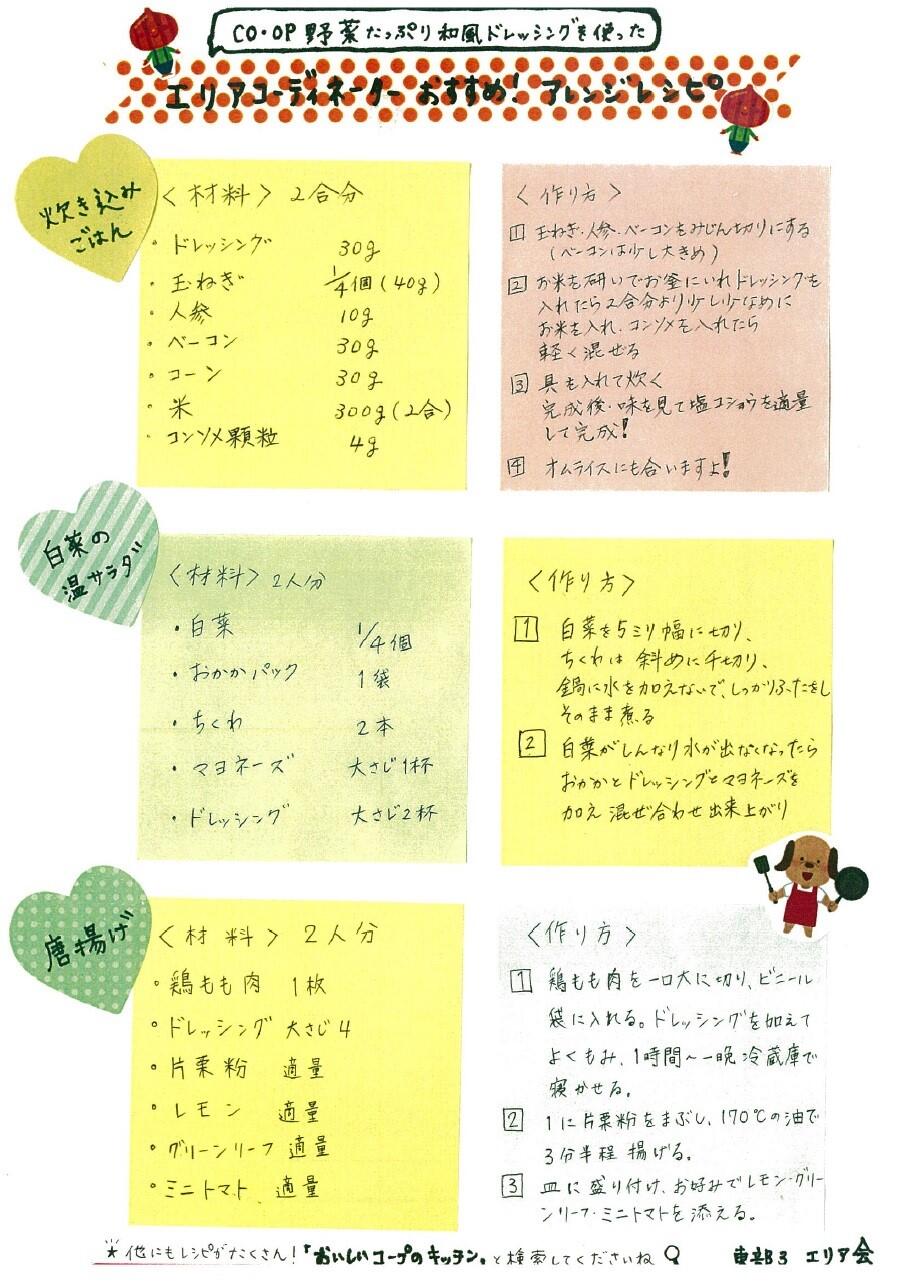 CO・OP 野菜たっぷり和風ドレッシングを使った
エリアコーディネーター おすすめ! アレンジレシピ
炊き込み
ごはん
〈材料〉 2合分
・ドレッシング 30g
・玉ねぎ 1/4個(40g)
・人参 10g
・ベーコン 30g
・コーン 30g
・米 300g(2合)
・コンソメ顆粒 4g
〈作り方〉
1 玉ねぎ・人参・ベーコンをみじん切りにする
(ベーコンは少し大きめ)
2 お米を研いでお釜にいれドレッシングを
入れたら2合分より少し少なめに
お米を入れ、コンソメを入れたら
軽く混ぜる
3 具も入れて炊く
完成後・味を見て塩コショウを適量
して完成!
4 オムライスにも合いますよ!
白菜の
温サラダ
〈材料〉2人分
・白菜 1/4個
・おかかパック 1袋
・ちくわ 2本
・マヨネーズ 大さじ1杯
・ドレッシング 大さじ2杯
〈作り方〉
1 白菜を5ミリ幅に切り、
ちくわは 斜めに千切り、
鍋に水を加えないで、しっかりふたをし
そのまま煮る
2 白菜がしんなり水が出なくなったら
おかかとドレッシングとマヨネーズを
加え 混ぜ合わせ 出来上がり
唐揚げ
〈材料〉 2人分
・鶏もも肉 1枚
・ドレッシング 大さじ4
・片栗粉 適量
・レモン 適量
・グリーンリーフ 適量
・ミニトマト 適量
〈作り方〉
1 鶏もも肉を一口大に切り、ビニール
袋に入れる。ドレッシングを加えて
よくもみ、1時間〜一晩冷蔵庫で
寝かせる。
2 1に片栗粉をまぶし、170℃の油で
3分半程 揚げる。
3 皿に盛り付け、お好みでレモン・グリー
ンリーフ・ミニトマトを添える。
☆他にもレシピがたくさん!「おいしいコープのキッチン」と検索してくださいね
東部3 エリア会